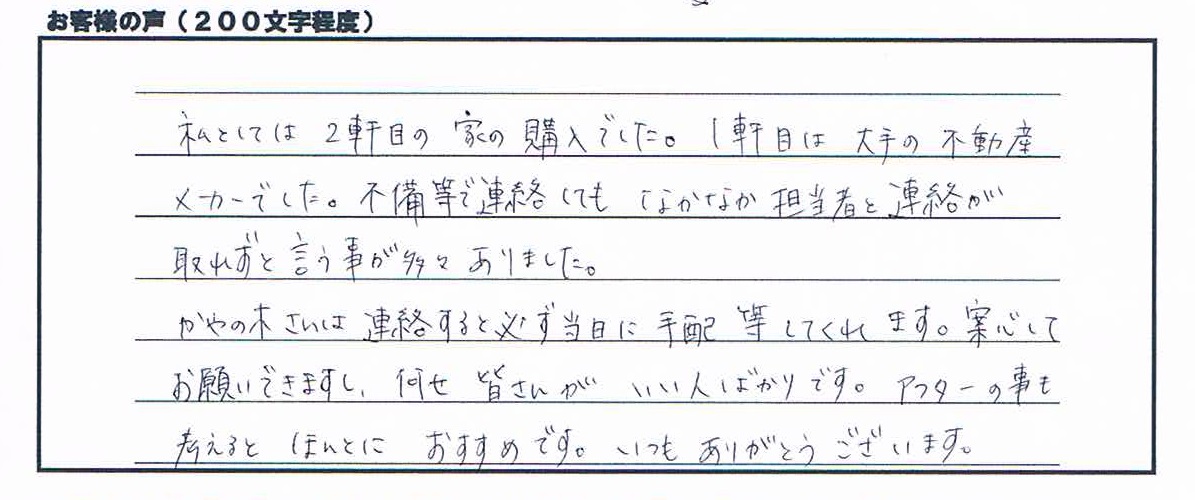 お客様の声（２００文字程度）
私としては２軒目の家の購入でした。１軒目は大手の不動産
メーカーでした。不備等で連絡してもなかなか担当者と連絡が
取れずと言う事が多々ありました。
かやの木さんは連絡すると必ず当日に手配等してくれます。案心して
お願いできますし、何せ皆さんがいい人ばかりです。アフターの事も
考えるとほんとにおすすめです。いつもありがとうございます。